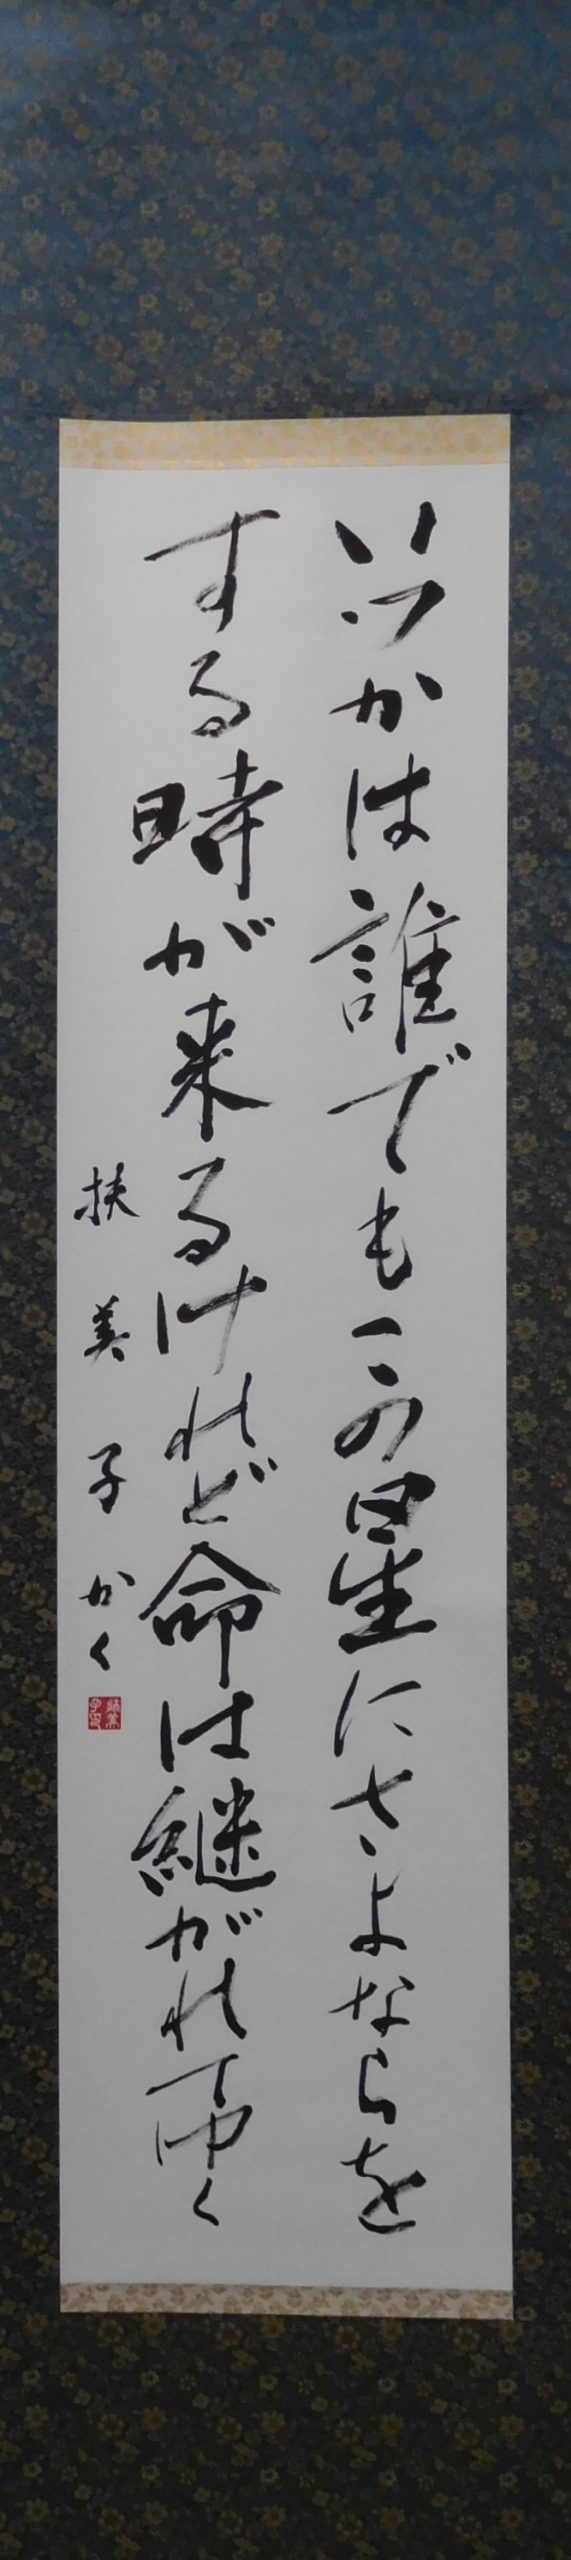 いつかは誰でもこの星にさよならを
する時が来るけれど命は継がれてゆく
扶美子かく